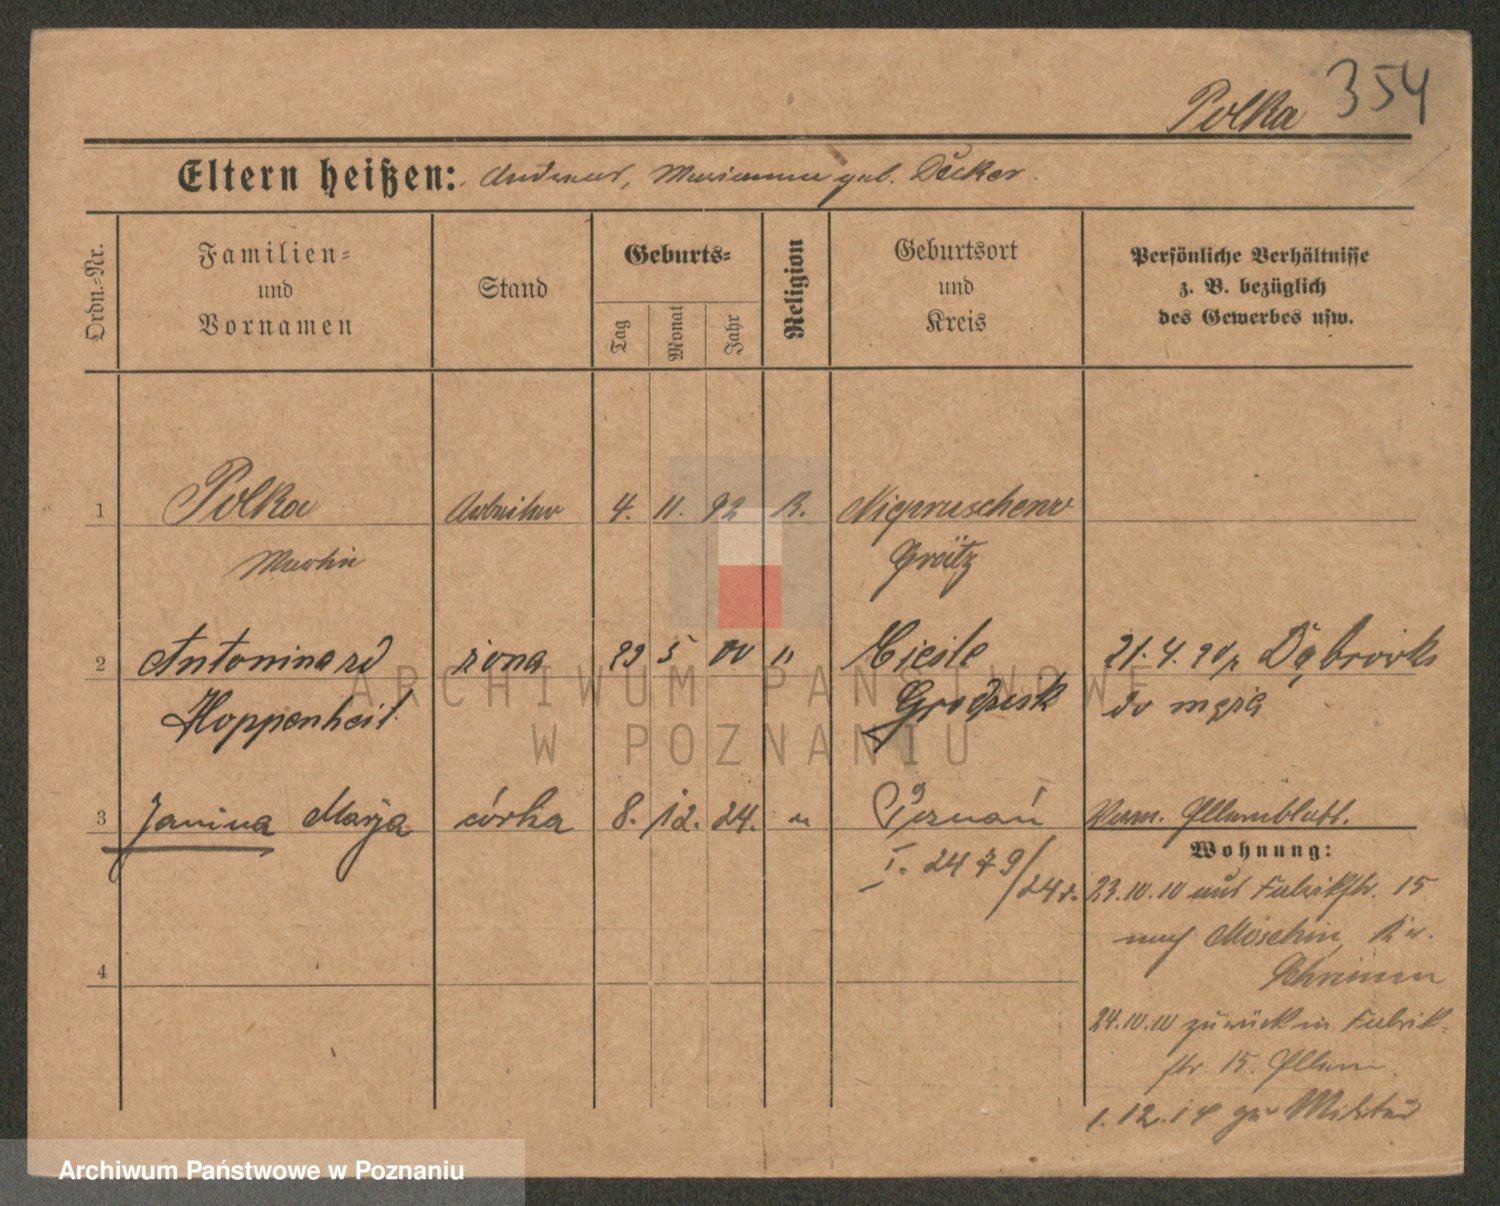 Polka 354
Eltern heißen: Andreas, Marianna geb. Decker.
Ordn.-Nr.
Familien-
und
Vornamen
Stand
Geburts-
Tag
Monat
Jahr
Religion
Geburtsort
und
Kreis
Persönliche Verhältnisse
z. B. bezüglich
des Gewerbes usw.
1 Polka Arbeiter 4. 11. 92 R. Niepruschewo
Martin Grätz
2 Antonina zd żona 29 5 00 " Ciesle 21. 4. Dąbrowka
Hoppenheit Grodzisk do męża
3 Janina Marja córka 8. 12. 24. " Poznań Elternblatt.
I. 24 79/24 r.
Wohnung:
23.10.10 aus Fabrikstr. 15
nach Moschin, Kr.
Schrimm
24.10.10 zurück in Fabrik-
str. 15. Eltern
4
1. 12. 14 zu Militär
ARCHIWUM PAŃSTWOWE
W POZNANIU
Archiwum Państwowe w Poznaniu